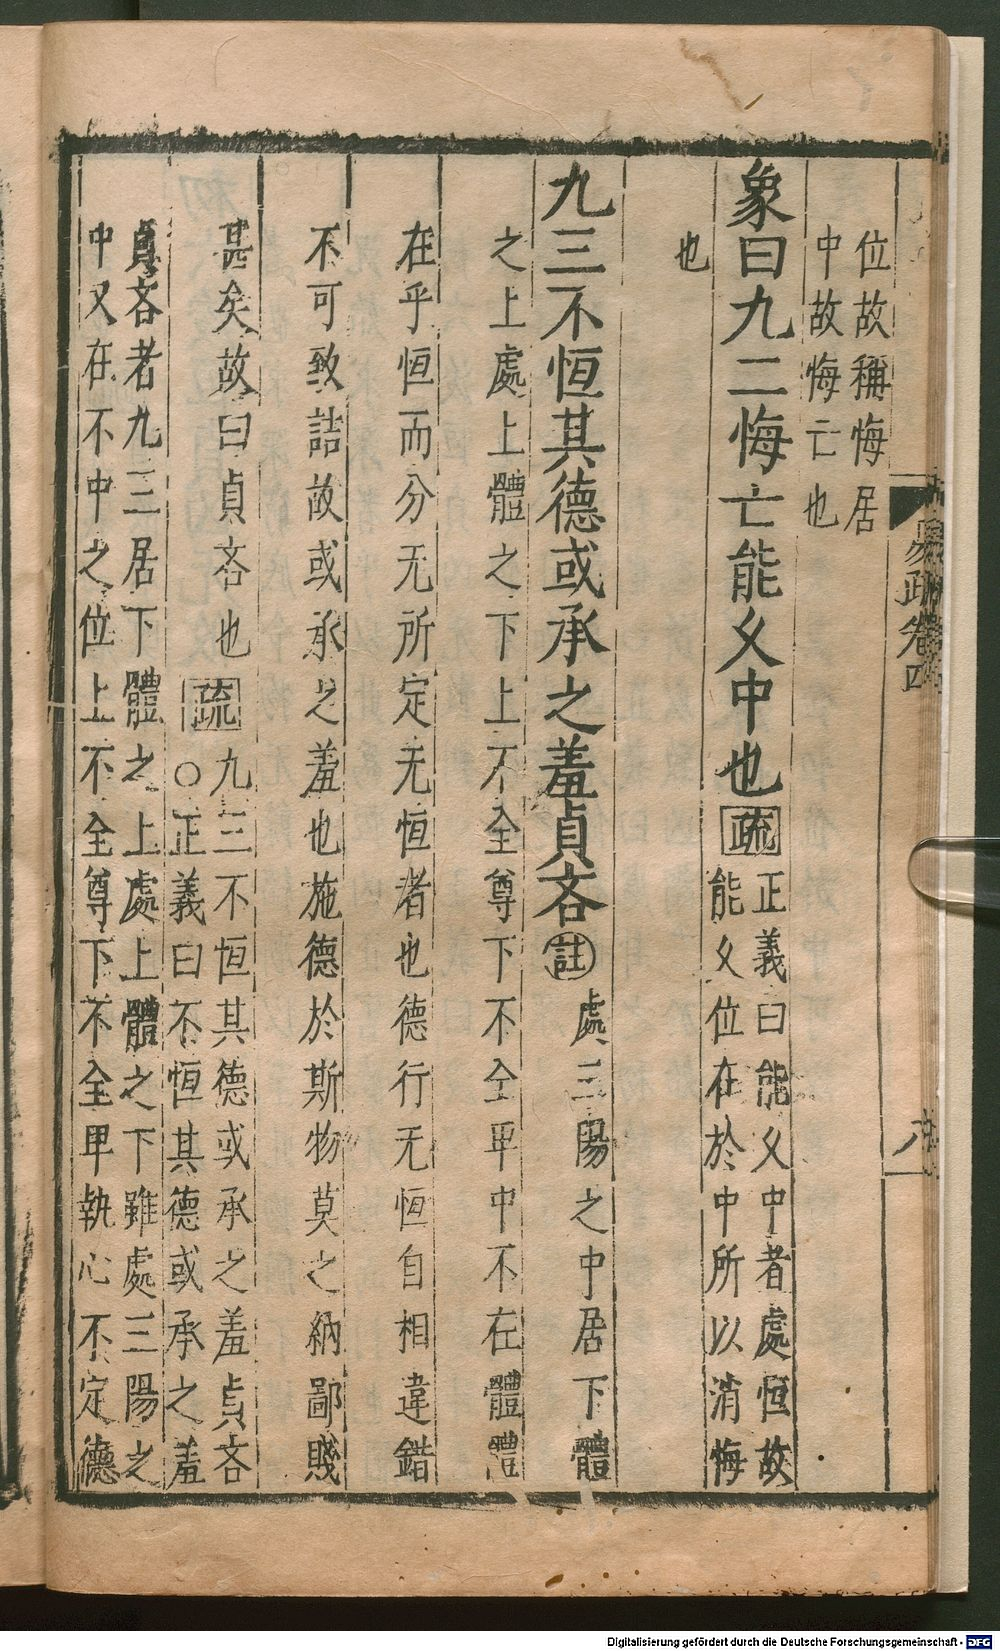 位故稱悔居
中故悔亡也
象曰九二悔亡能久中也疏
正義曰能久中者處恒故
能久位在於中所以消悔
也
九三不恒其德或承之羞貞吝註
處三陽之中居下體
之上處上體之下上不全尊下不全卑中不在體體
在乎恒而分无所定无恒者也德行无恒自相違錯
不可致詰故或承之羞也施德於斯物莫之納鄙賤
甚矣故曰貞吝也疏
九三不恒其德或承之羞貞吝
○正義曰不恒其德或承之羞
貞吝者九三居下體之上處上體之下雖處三陽之
中又在不中之位上不全尊下不全卑執心不定德
易疏卷四
八
Digitalisierung gefördert durch die Deutsche Forschungsgemeinschaft - DFG